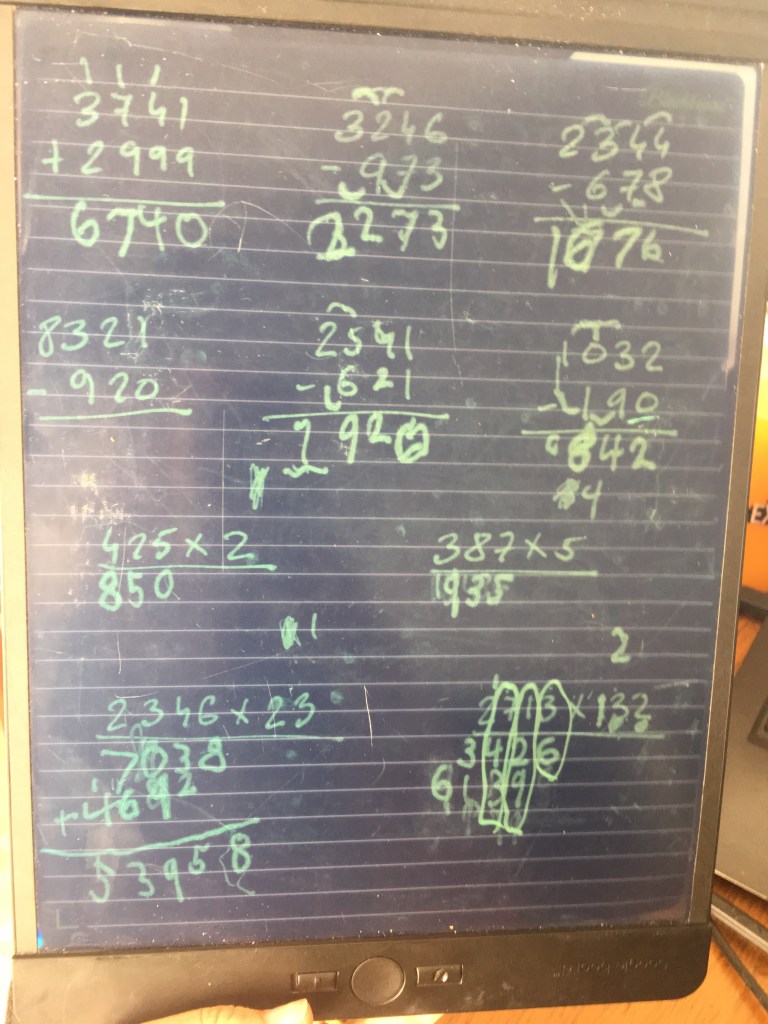 1 1 1
3741 3246 2344
+ 2999 - 973 - 678
6740 2273 1676
8321 2541 1032
- 920 - 621 - 190
1920 842
4
425 x 2 387 x 5
850 1935
1 2
2346 x 23 2713 x 132
7038 3426
+ 4692 6139
53958